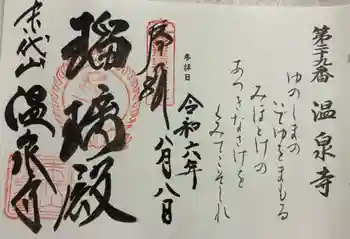 第二十九番 温泉寺
ゆのしまの
いでゆをまもる
みほとけの
あつきなさけを
くみてこそしれ
奉拝
参拝日
令和六年
八月八日
瑠璃殿
末代山
温泉寺